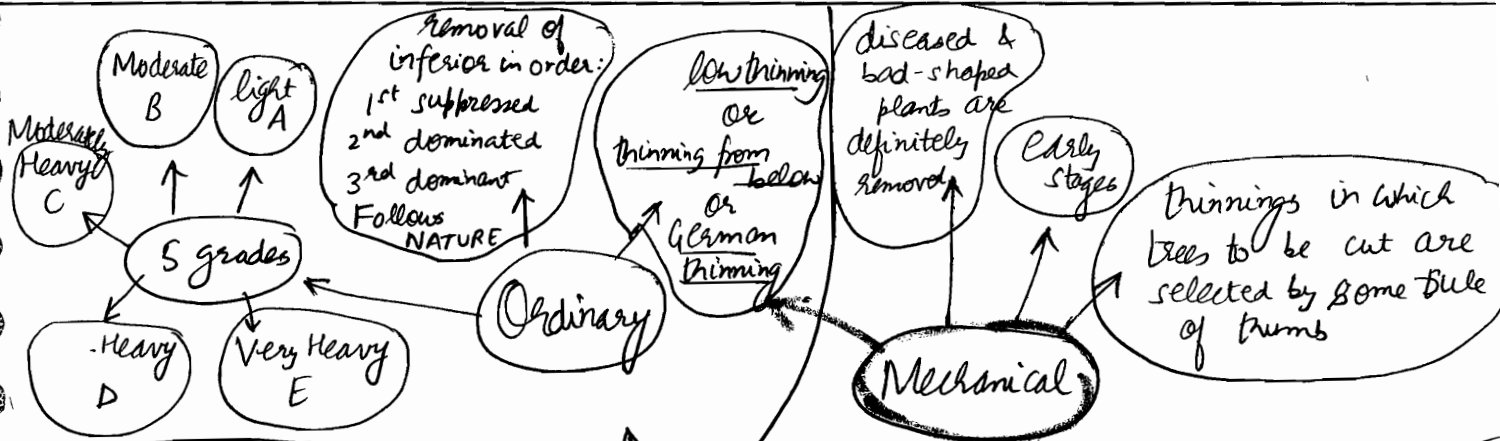 Moderate
B
light
A
Moderately
Heavy
C
5 grades
Heavy
D
Very Heavy
E
removal of
inferior in order:
1st suppressed
2nd dominated
3rd dominant
Follows
NATURE
low thinning
or
thinning from
below
or
German
thinning
Ordinary
diseased &
bad-shaped
plants are
definitely
removed
early
stages
thinnings in which
trees to be cut are
selected by some rule
of thumb
Mechanical